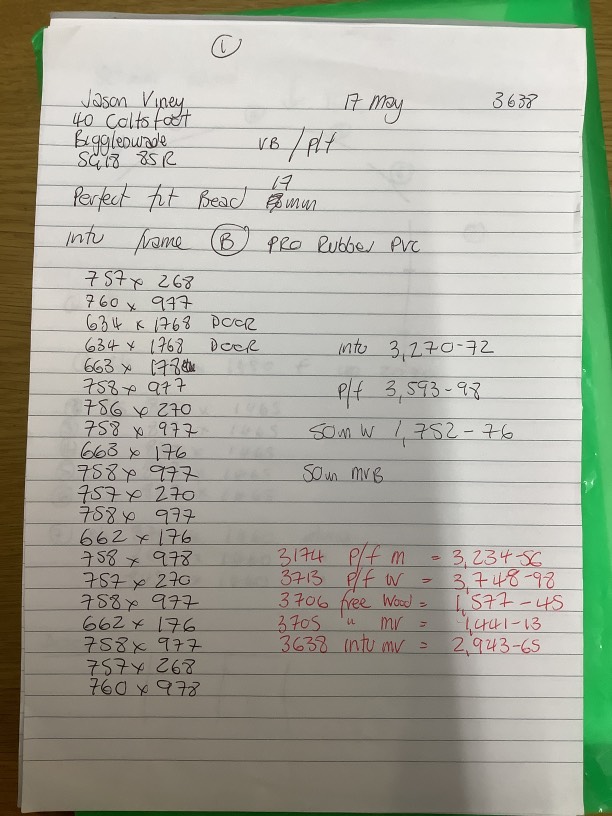 1
Jason Viney 17 May 3638
40 Coltsfoot
Biggleswade VB / p/f
SG18 8SR
17
Perfect fit Bead mm
Intu frame B PRO Rubber PVC
757 x 268
760 x 977
634 x 1768 DOOR
634 x 1768 DOOR Intu 3,270-72
663 x 178
758 x 977 p/f 3,593-98
756 x 270
758 x 977 50m W 1,752-76
663 x 176
758 x 977 50m MVB
757 x 270
758 x 977
662 x 176
758 x 978 3174 p/f m = 3,234-56
757 x 270 3713 p/f W = 3,748-98
758 x 977 3706 free Wood = 1,577-45
662 x 176 3705 " mv = 1,441-13
758 x 977 3638 intu mv = 2,943-65
757 x 268
760 x 978